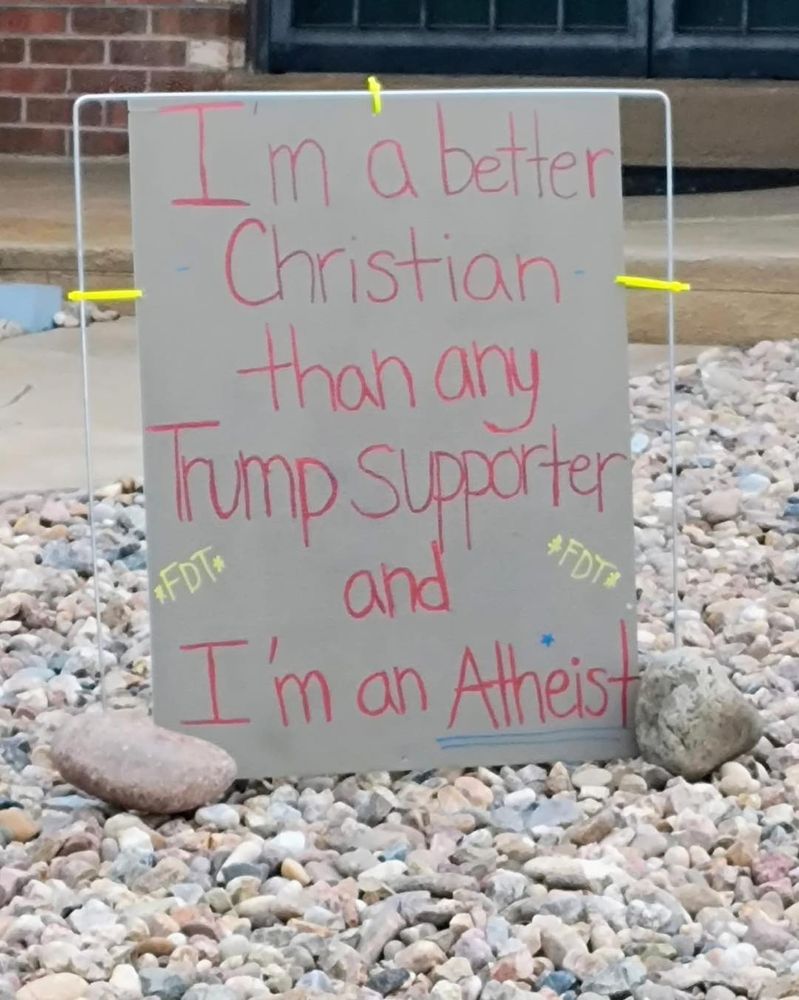 I'm a better
- Christian -
than any
Trump supporter
*FDT* *FDT*
and
I'm an Atheist